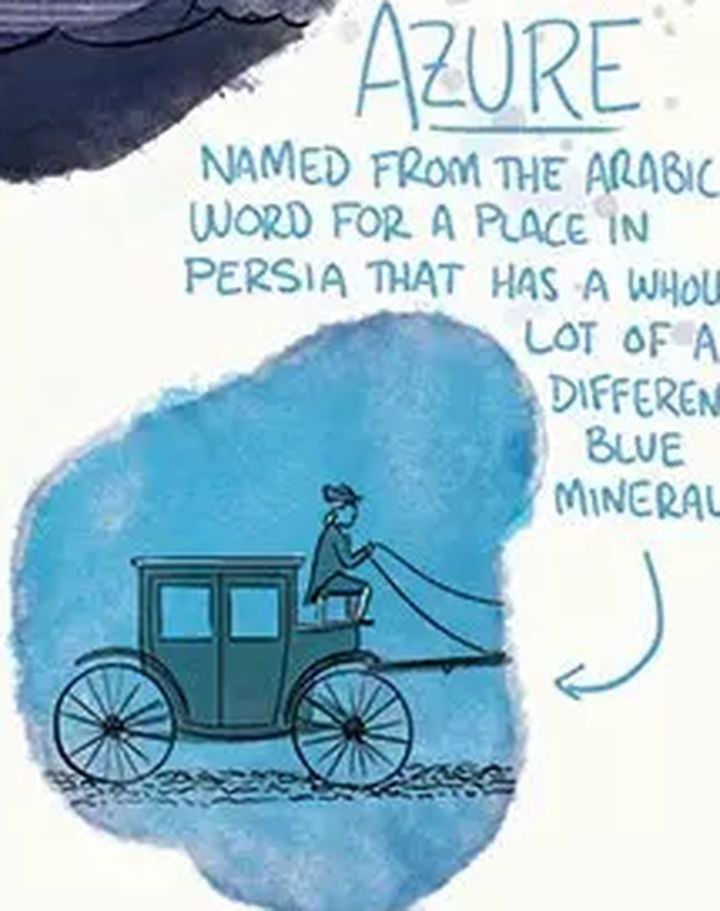 AZURE
NAMED FROM THE ARABIC
WORD FOR A PLACE IN
PERSIA THAT HAS A WHOL
LOT OF A
DIFFEREN
BLUE
MINERAL